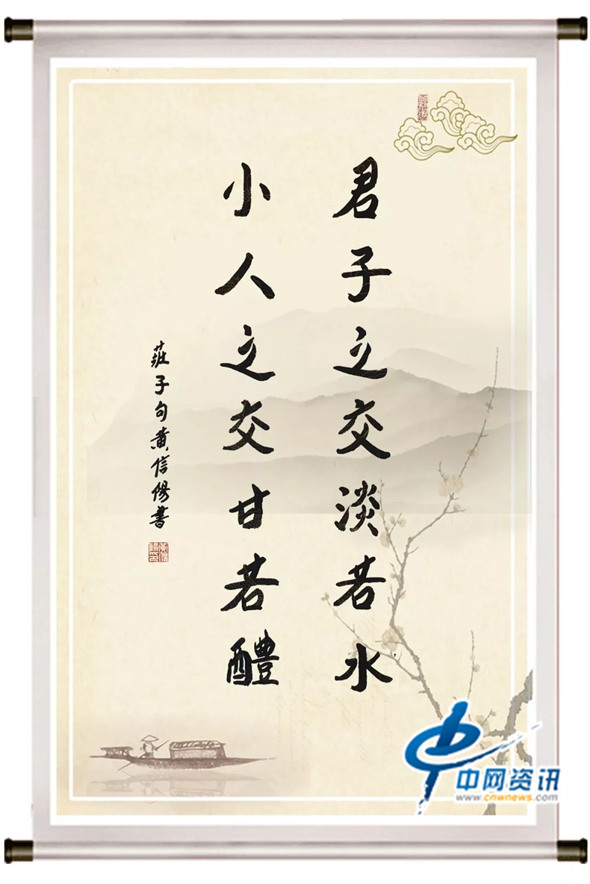 君子之交淡若水
小人之交甘若醴
莊子句黄信阳書
中网资讯
www.cnwnews.com